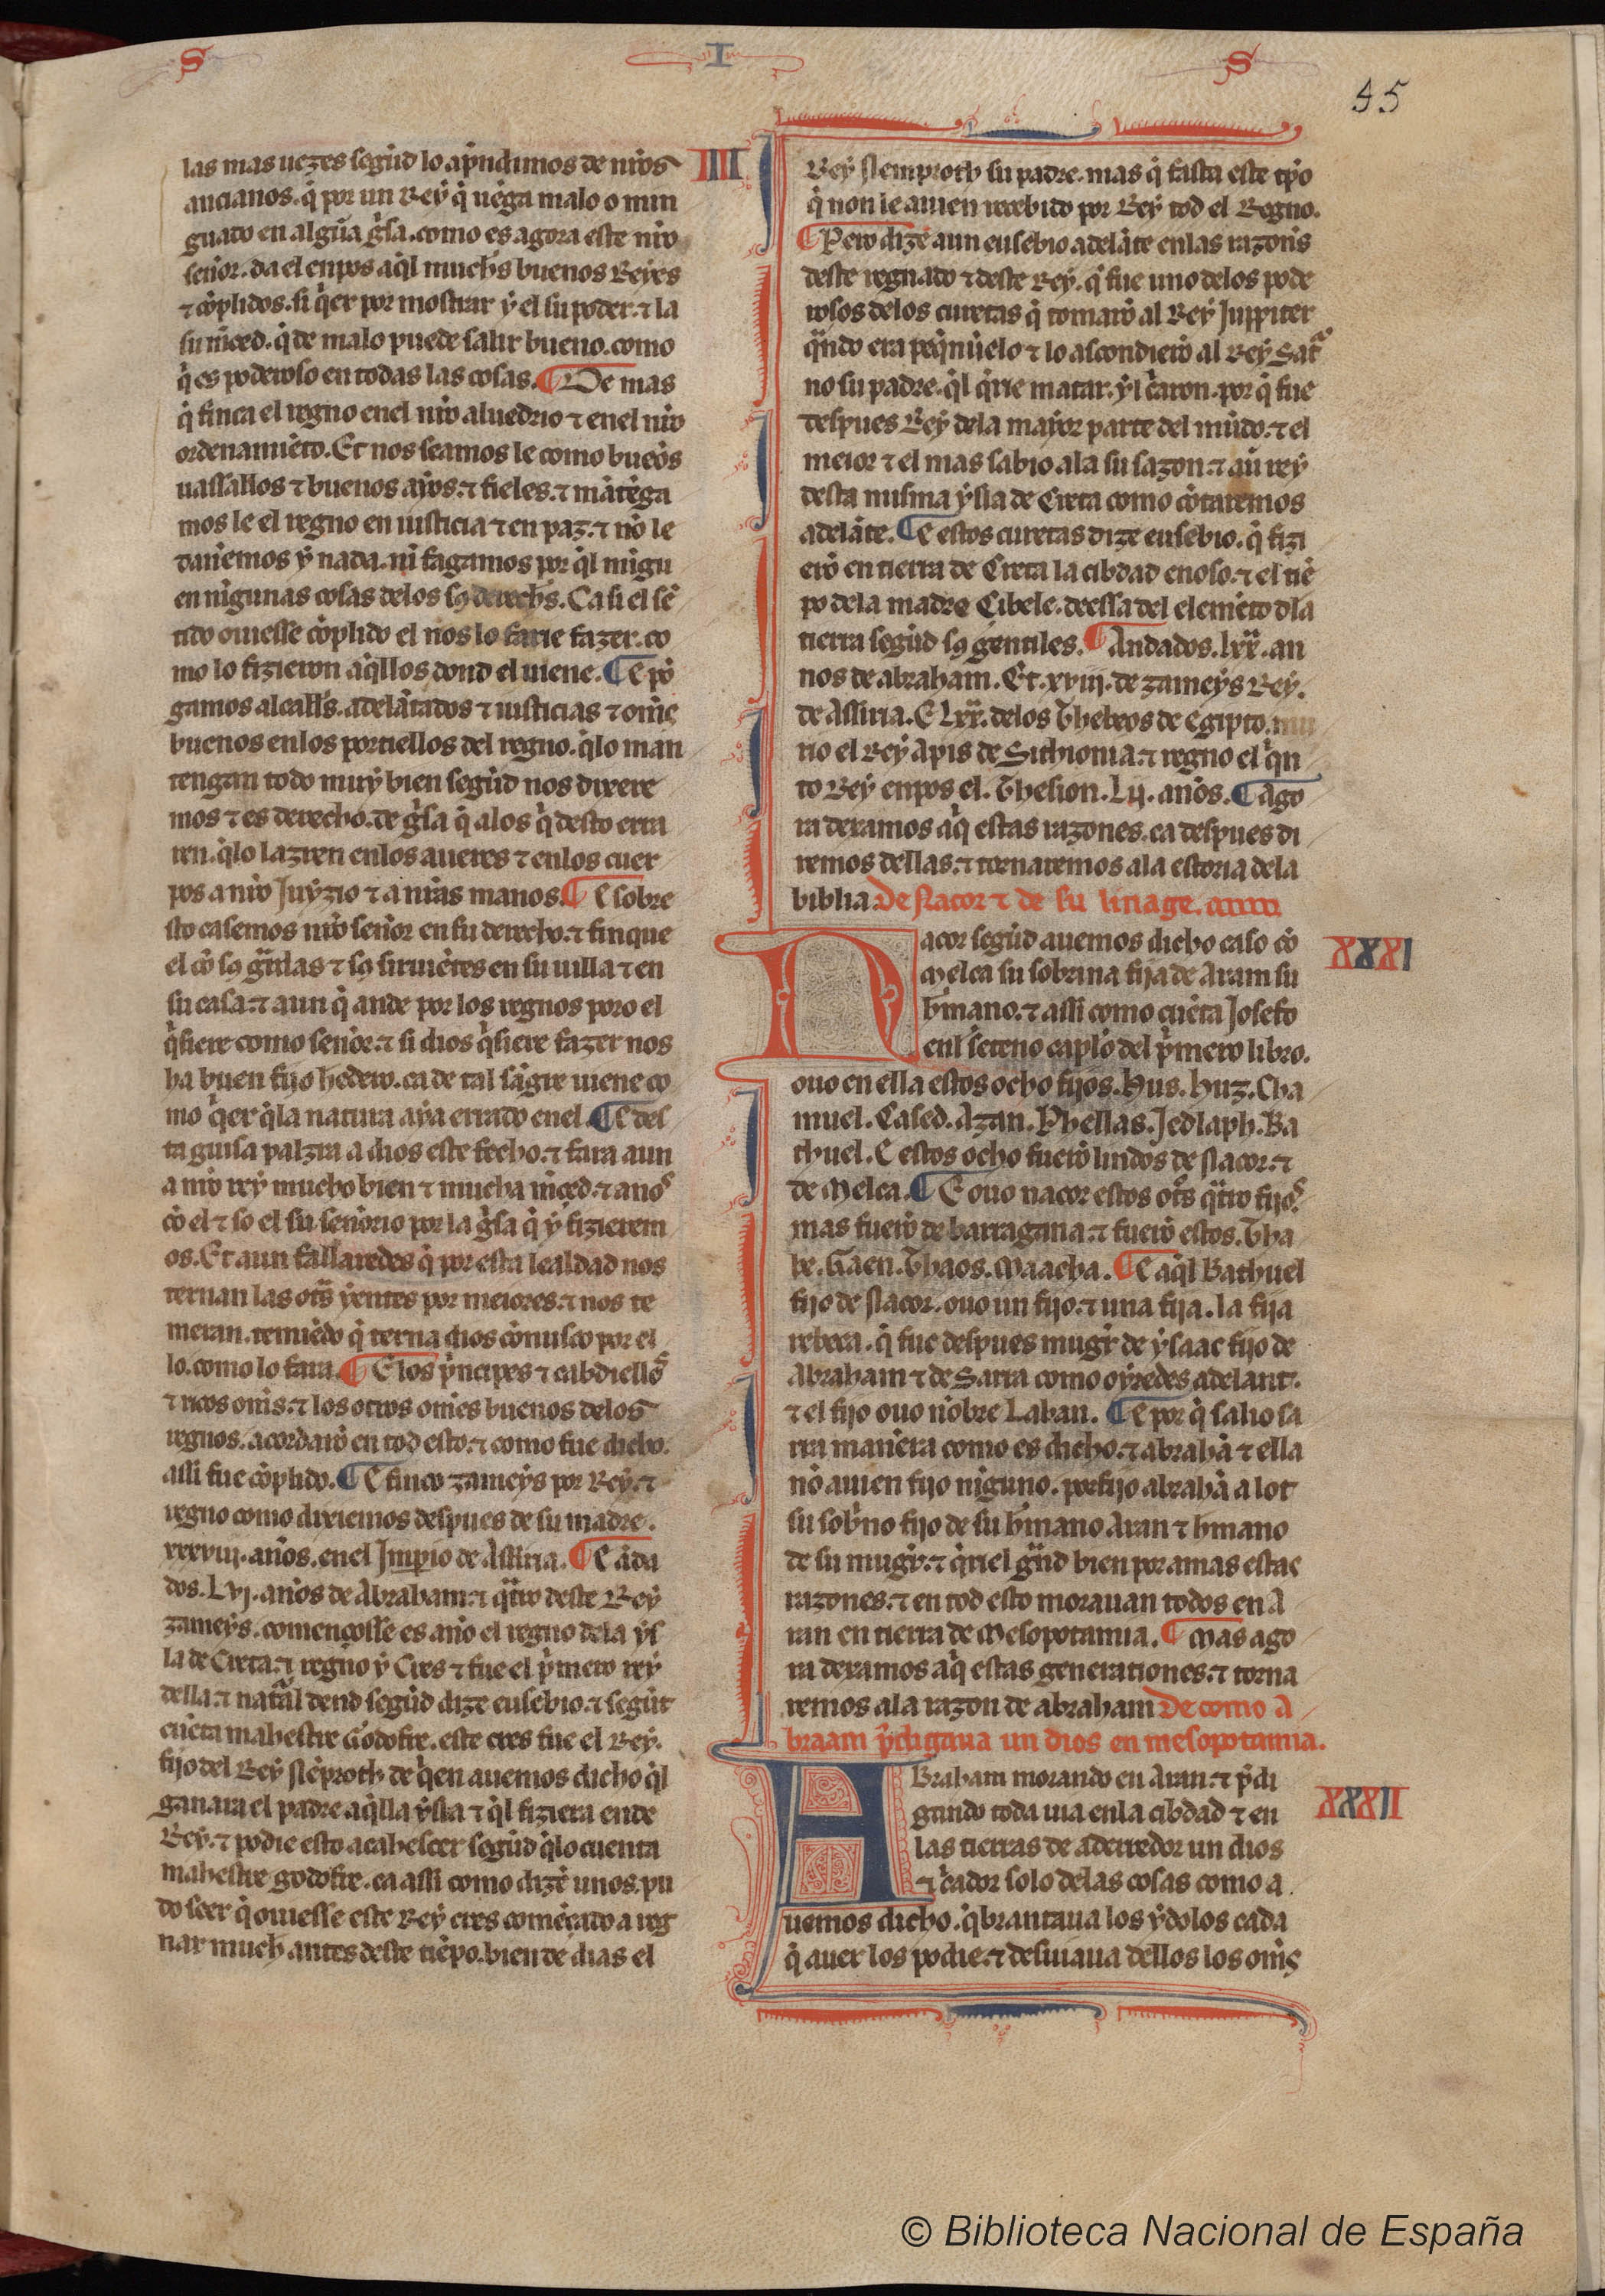 S I S
45
las mas uezes segũd lo apndimos de nr̃os
ancianos. q̃ por un Rey q̃ uẽga malo o min
guado en algũa gĩsa. como es agora este nr̃o
sennor. da el enpos aq̃l muchos buenos Reyes
⁊ cõplidos. si q̃er por mostrar y el su poder. ⁊ la
su mr̃ced. q̃ de malo puede salir bueno. como
q̃ es poderoso en todas las cosas. ¶ De mas
q̃ finca el regno en el nr̃o aluedrio ⁊ en el nr̃o
ordenamiẽto. Et nos seamos le como buẽos
uassallos ⁊ buenos am̃os. ⁊ fieles. ⁊ mãtẽga
mos le el regno en iusticia ⁊ en paz. ⁊ nõ le
dannemos y nada. nĩ fagamos por q̃l mĩgu
en nĩgunas cosas delos sꝯ derechos. Ca si el sẽ
tido ouiesse cõplido el nos lo farie fazer. co
mo lo fizieron aq̃llos dond el uiene. ¶ E põ
gamos alcalłs. adelãtados ⁊ iusticias ⁊ om̃es
buenos en los portiellos del regno. q̃lo man
tengan todo muy bien segũd nos dixere
mos ⁊ es derecho. de gĩsa q̃ alos q̃ desto erra
ren. q̃lo lazren enlos aueres ⁊ enlos cuer
pos a nr̃o Juyzio ⁊ a nr̃as manos. ¶ E sobre
sto casemos nr̃o sennor en su derecho. ⁊ finque
el cõ sꝯ gũrdas ⁊ sꝯ siruiẽtes en su uilla ⁊ en
su casa. ⁊ aun q̃ ande por los regnos poro el
q̃siere como sennor. ⁊ si dios q̃siere fazer nos
ha buen fijo hedero. ca de tal sãgre uiene co
mo q̃er q̃la natura aya errado en el. ¶ E des
ta guisa palzra a dios este fecho. ⁊ fara aun
a nr̃o rey mucho bien ⁊ mucha mr̃ced. ⁊ a nos
cõ el ⁊ so el su sennorio por la gĩsa q̃ y fizierem
os. Et aun fallaredes q̃ por esta lealdad nos
ternan las otr̃s yentes por meiores. ⁊ nos te
meran. temiẽdo q̃ terna dios cõnusco por el
lo. como lo fara. ¶ E los p̃ncipes ⁊ cabdiellos
⁊ ricos om̃s. ⁊ los otros omes buenos delos
regnos. acordarõ en tod esto. ⁊ como fue dicho.
assi fue cõplido. ¶ E finco zameys por Rey. ⁊
regno como dixiemos despues de su madre.
xxxviij. annos. en el Jmperio de Assiria. ¶ E ãda
dos. Lvj. annos de Abraham. ⁊ q̃tro deste Rey
zameys. començosse es anno el regno dela ys
la de Creta. ⁊ regno y Cres ⁊ fue el p̃mero rey
della. ⁊ nat̃al dend segũd dize eusebio. ⁊ segũt
cuẽta mahestre Godofre. este cres fue el Rey.
fijo del Rey Nẽproth de q̃en auemos dicho q̃l
ganara el padre aq̃lla ysla ⁊ q̃l fiziera ende
Rey. ⁊ podie esto acahescer segũd q̃lo cuenta
mahestre godofre. ca assi como dizẽ unos. pu
do seer q̃ ouiesse este Rey cres comẽçado a reg
nar much antes deste tiẽpo. bien de dias el
IIII
Rey Nemproth su padre. mas q̃ fasta este tp̃o
q̃ non le auien recebido por Rey tod el Regno.
¶ Pero dize aun eusebio adelãte enlas razones
deste regnado ⁊ deste Rey. q̃ fue uno delos pode
rosos delos curetas q̃ tomarõ al Rey Juppiter
q̃ndo era peq̃nnuelo ⁊ lo ascondierõ al Rey Sat̃
no su padre. q̃l q̃rie matar. yl c̃aron. por q̃ fue
despues Rey dela mayor parte del mũdo. ⁊ el
meior ⁊ el mas sabio ala su sazon. ⁊ aũ rey
desta misma ysla de Creta como cõtaremos
adelãte. ¶ E estos curetas dize eusebio. q̃ fizi
erõ en tierra de Creta la cibdad enoso. ⁊ el tiẽ
po dela madre Cibele. deessa del elemẽto dla
tierra segũd sꝯ gentiles. ¶ Andados. lxx. an
nos de abraham. Et. xviij. de zameys Rey.
de Assiria. E lxx. delos Thebeos de Egipto. mu
rio el Rey Apis de Sithionia. ⁊ regno el q̃n
to Rey enpos el. Thesion. Lij. annos. ¶ Ago
ra dexamos aq̃ estas razones. ca despues di
remos dellas. ⁊ tornaremos ala estoria dela
biblia. De Nacor ⁊ de su linage.
XXXI
Nacor segũd auemos dicho caso cõ
Melca su sobrina fija de Aram su
hr̃mano. ⁊ assi como cuẽta Josefo
enl seteno capl̃o del p̃mero libro.
ouo en ella estos ocho fijos. Hus. huz. Cha
muel. Cased. Azan. Phellas. Jedlaph. Ba
thuel. E estos ocho fuerõ lindos de Nacor. ⁊
de Melca. ¶ E ouo nacor estos otr̃s q̃tro fijos.
mas fuerõ de barragana. ⁊ fuerõ estos. Tha
be. Gaen. Thaos. Maacha. ¶ E aq̃l Bathuel
fijo de Nacor. ouo un fijo. ⁊ una fija. la fija
rebeca. q̃ fue despues mugr̃ de ysaac fijo de
Abraham ⁊ de Sarra como oyredes adelant.
⁊ el fijo ouo nõbre Laban. ¶ E por q̃ salio sa
rra mannera como es dicho. ⁊ abrahã ⁊ ella
nõ auien fijo nĩguno. porfijo abrahã a lot
su sobr̃no fijo de su hr̃mano Aran ⁊ hr̃mano
de su mugr̃. ⁊ q̃riel grãd bien por amas estas
razones. ⁊ en tod esto morauan todos en A
ran en tierra de Mesopotamia. ¶ Mas ago
ra dexamos aq̃ estas generationes. ⁊ torna
remos ala razon de abraham De como A
braam p̃digaua un dios en mesopotamia.
XXXII
ABraham morando en Aran. ⁊ p̃di
gando toda uia enla cibdad ⁊ en
las tierras de aderredor un dios
⁊ c̃ador solo delas cosas como a
uemos dicho. q̃brantaua los ydolos cada
q̃ auer los podie. ⁊ desuiaua dellos los om̃s
© Biblioteca Nacional de España